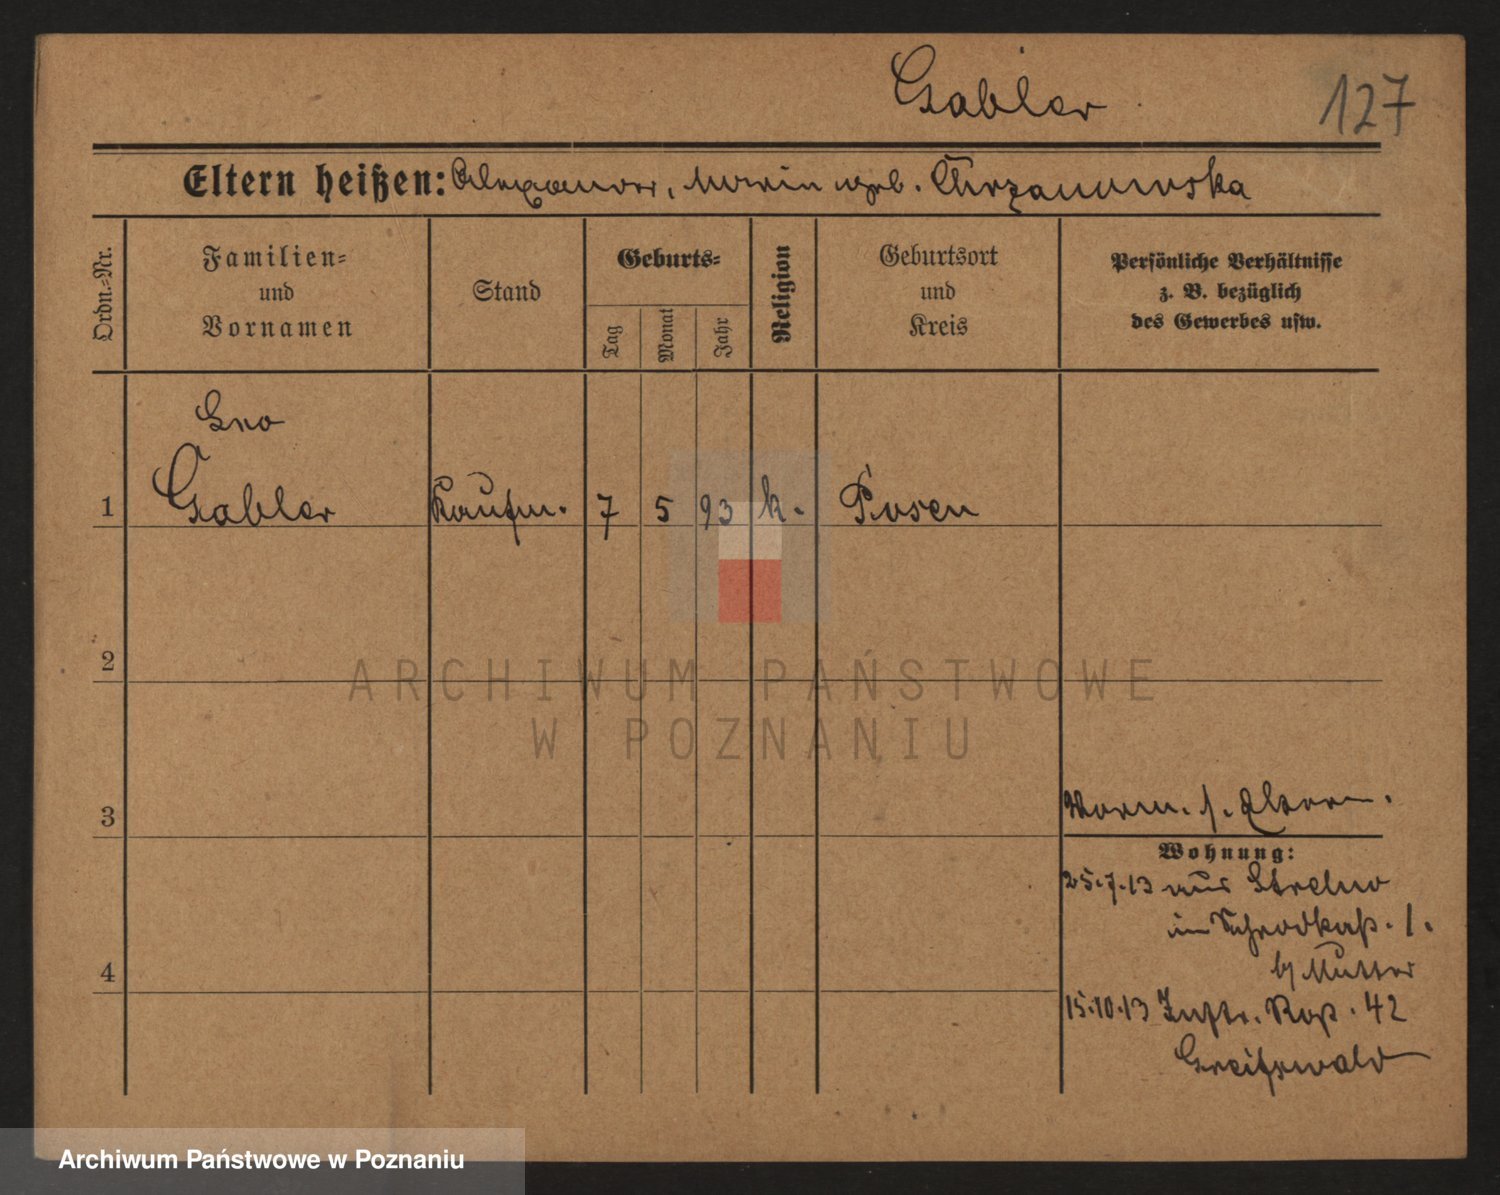 Gabler
127
Eltern heißen: Alexander, Maria geb. Chrzanowska
Ordn.-Nr.
Familien-
und
Vornamen
Stand
Geburts-
Tag
Monat
Jahr
Religion
Geburtsort
und
Kreis
Persönliche Verhältnisse
z. B. bezüglich
des Gewerbes usw.
1
Gabler
Kaufm.
7
5
93
k.
Posen
2
ARCHIWUM PAŃSTWOWE
W POZNANIU
3
Vorm. s. Eltern.
Wohnung:
25.7.13 aus Strelno
im Schrodkaß. 1.
b/ Mutter
4
15.10.13 Inftr. Rgt. 42
Greifswald
Archiwum Państwowe w Poznaniu